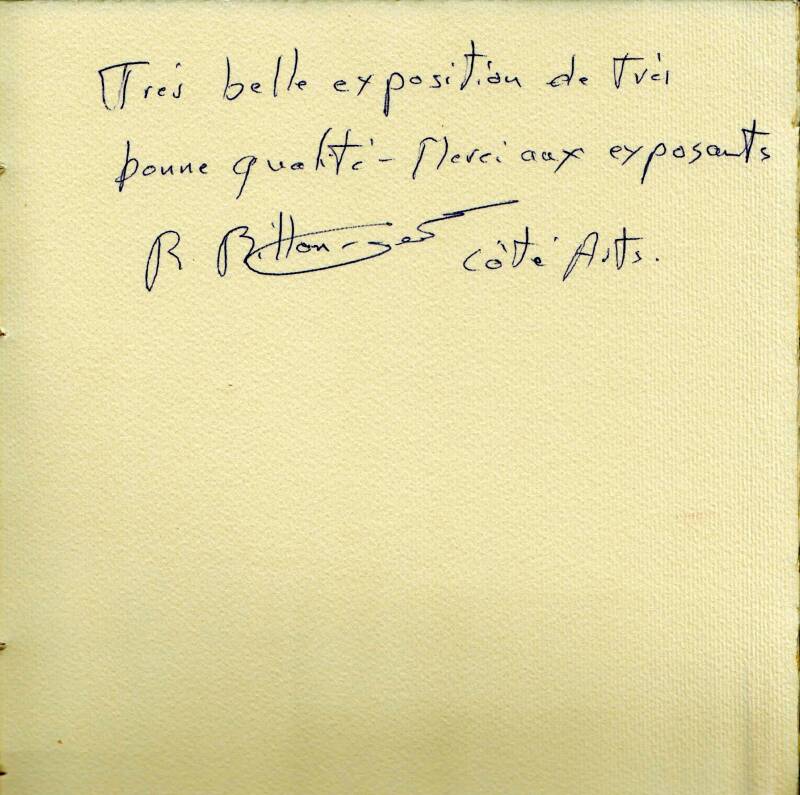 Très belle exposition de très
bonne qualité - Merci aux exposants
R. Côté Arts.